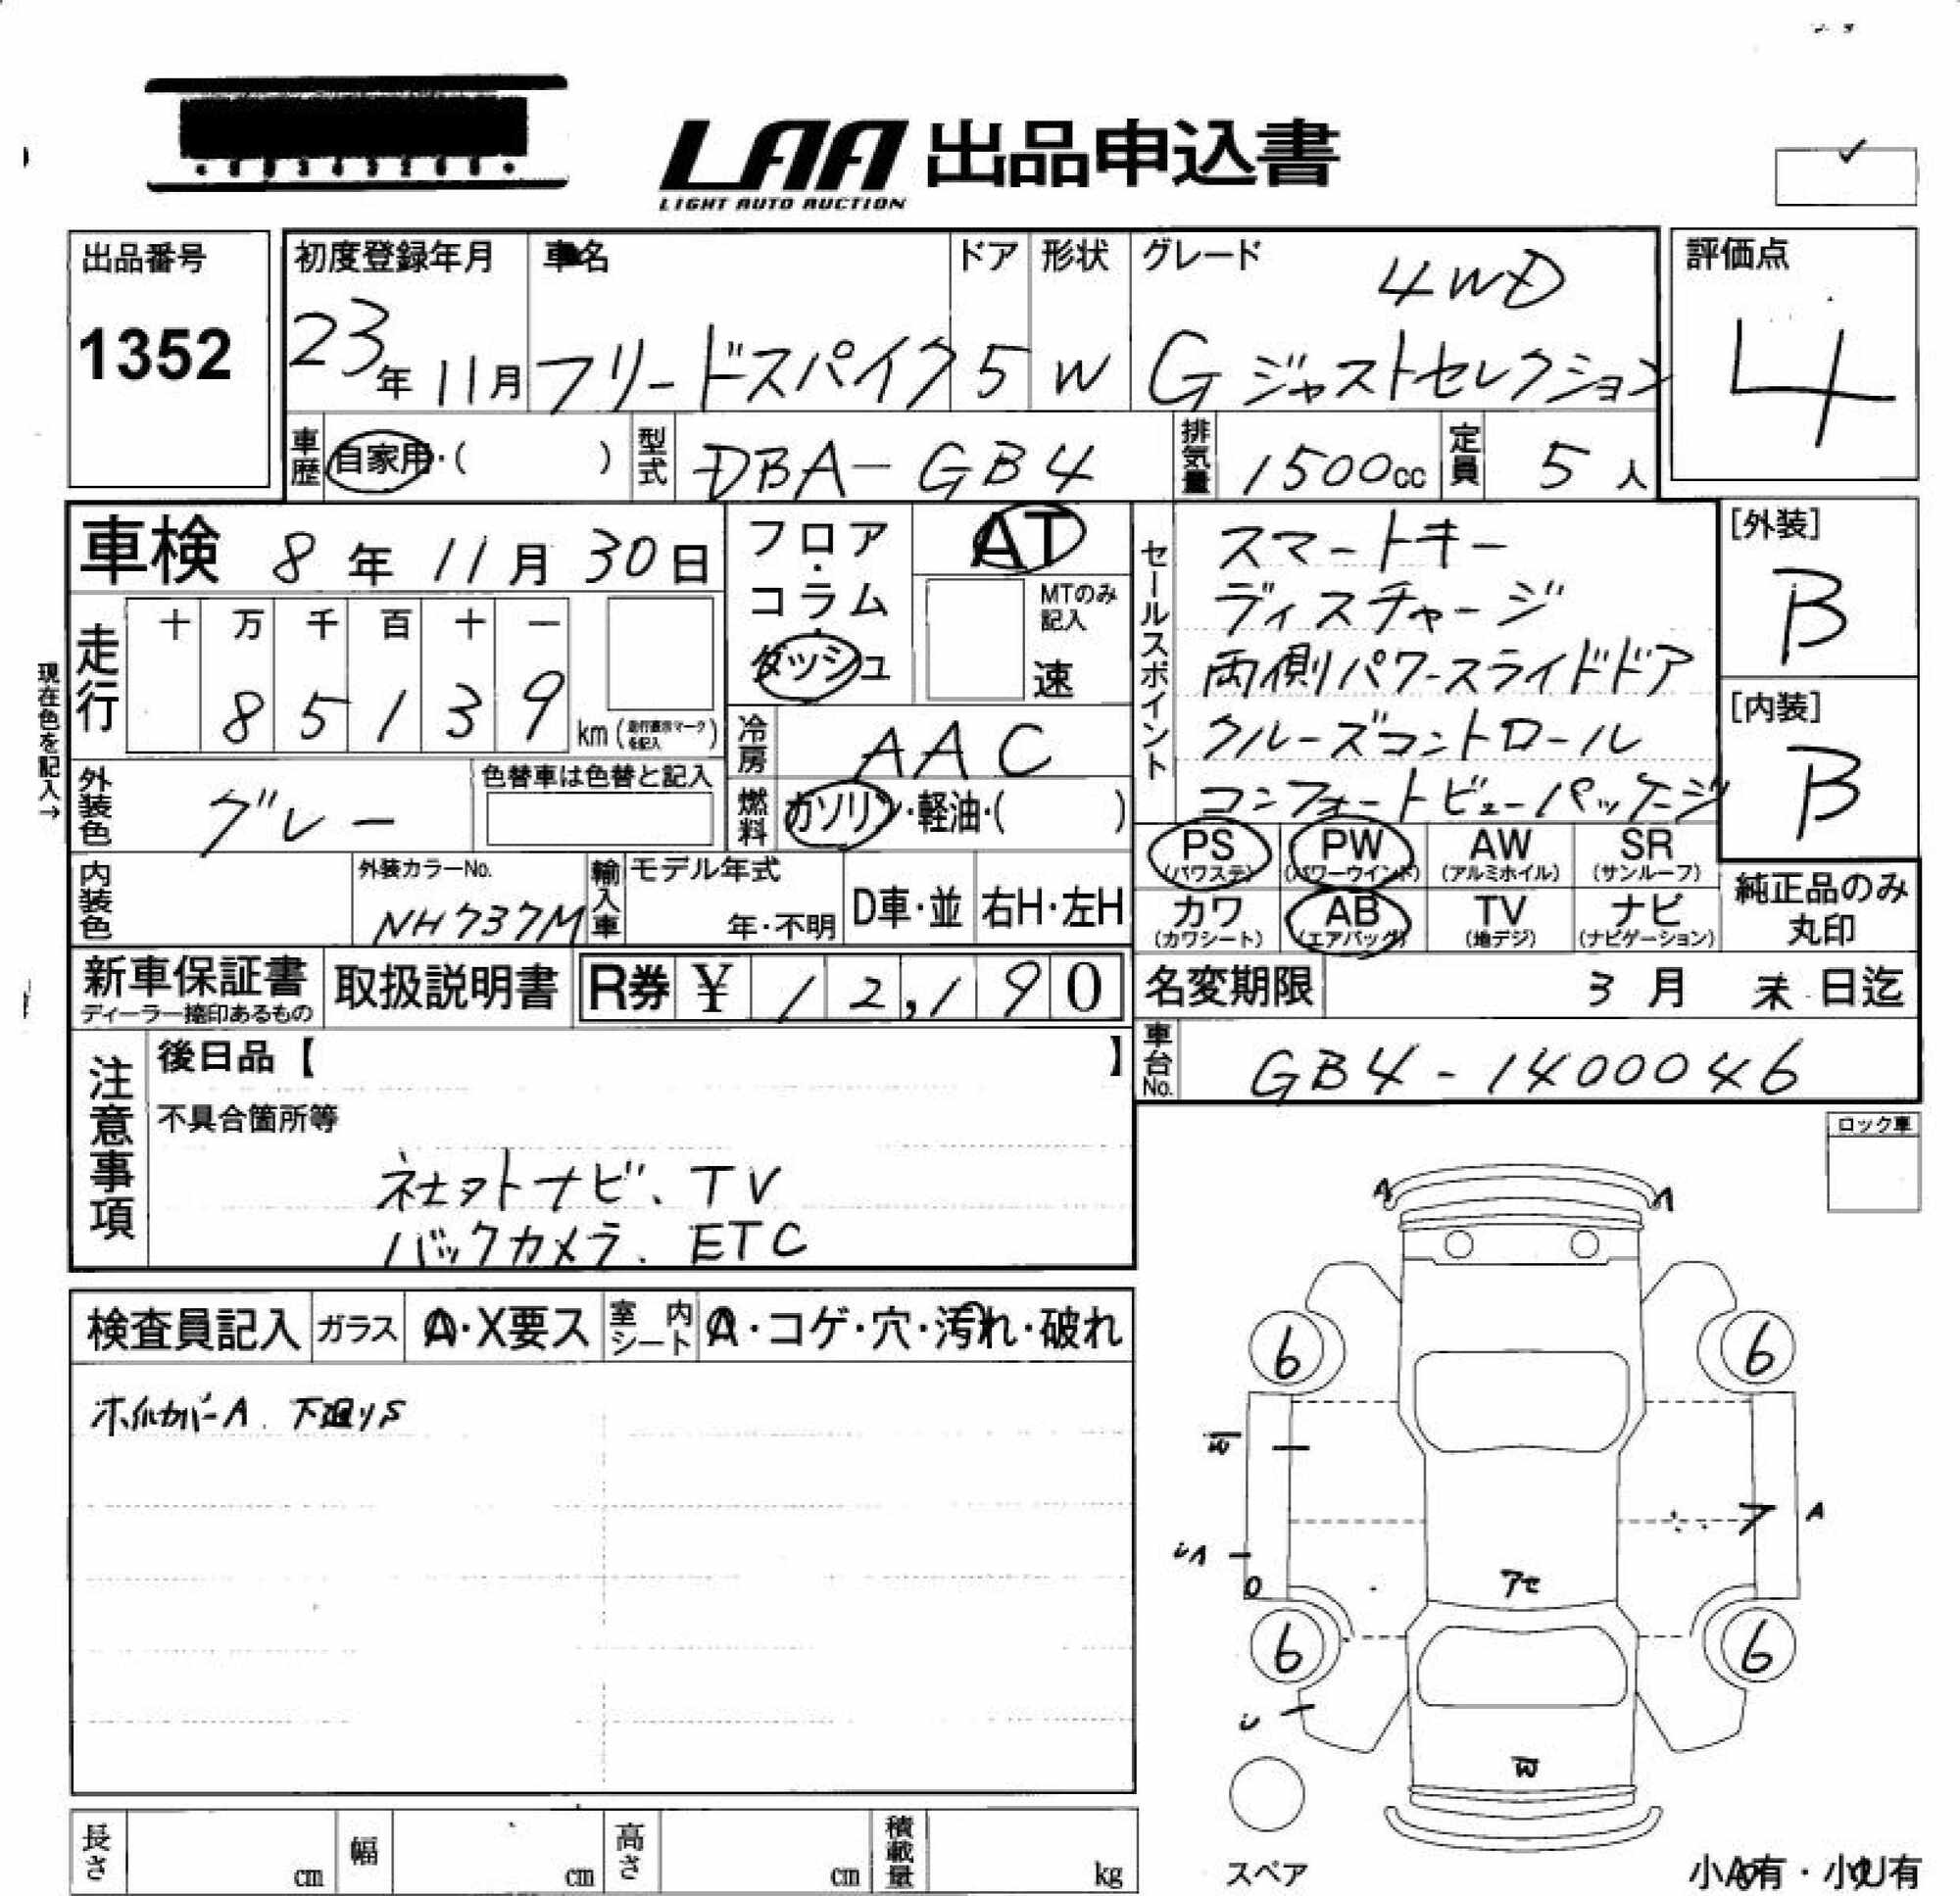 LAA 出品申込書
LIGHT AUTO AUCTION
出品番号
1352
初度登録年月
23年11月
車名
フリードスパイク
ドア
5
形状
W
グレード
4WD
G ジャストセレクション
評価点
4
車歴
自家用・( )
型式
DBA-GB4
排気量
1500cc
定員
5人
車検 8年11月30日
フロア・コラム・ダッシュ
AT
MTのみ記入
速
セールスポイント
スマートキー
ディスチャージ
両側パワースライドドア
クルーズコントロール
コンフォートビューパッケージ
[外装]
B
[内装]
B
現在色を記入→
走行
十 万 千 百 十 一
8 5 1 3 9
km
冷房
AAC
燃料
ガソリン・軽油・( )
外装色
グレー
色替車は色替と記入
内装色
外装カラーNo.
NH737M
輸入車
モデル年式
年・不明
D車・並
右H・左H
PS
(パワステ)
PW
(パワーウインド)
AW
(アルミホイル)
SR
(サンルーフ)
カワ
(カワシート)
AB
(エアバッグ)
TV
(地デジ)
ナビ
(ナビゲーション)
純正品のみ
丸印
新車保証書
ディーラー捺印あるもの
取扱説明書
R券 ¥ 12,190
名変期限
3月末日迄
車台No.
GB4-1400046
注意事項
後日品【 】
不具合箇所等
社外ナビ、TV
バックカメラ、ETC
ロック車
検査員記入
ガラス
A・X要ス
室内シート
A・コゲ・穴・汚れ・破れ
ホイルカバーA 下廻りS
A
A
6
6
W
A
アセ
6
6
W
スペア
小A有・小U有
長さ
cm
幅
cm
高さ
cm
積載量
kg